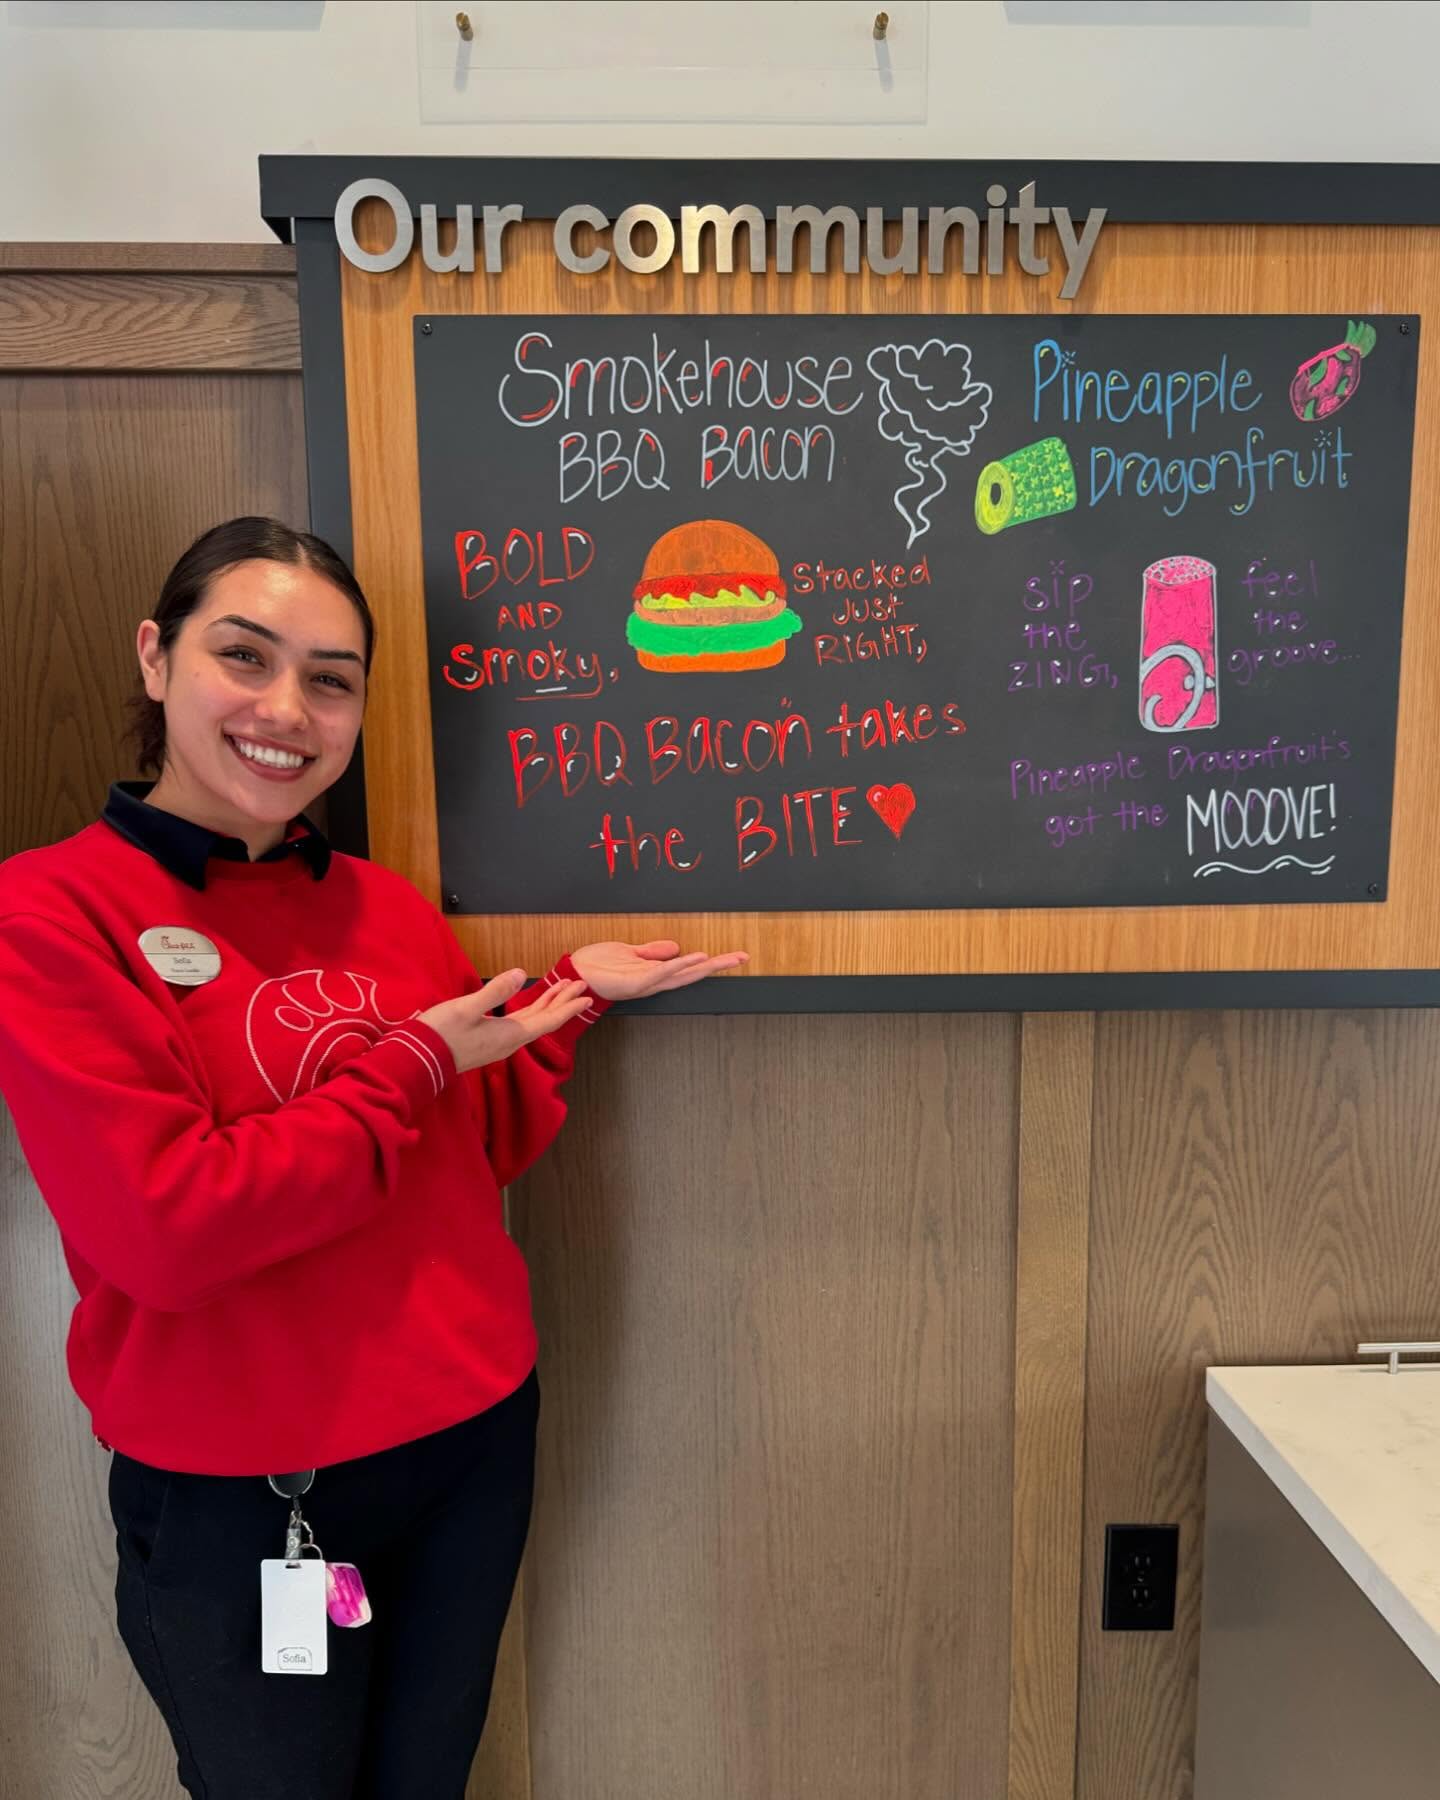 Our community
Smokehouse
BBQ Bacon
BOLD
AND
Smoky,
Stacked
JUST
RIGHT,
BBQ Bacon takes
the BITE
Pineapple
Dragonfruit
sip
the
ZING,
feel
the
groove...
Pineapple Dragonfruit's
got the MOOOVE!
Chick-fil-A
Sofia
Team Leader
Sofia